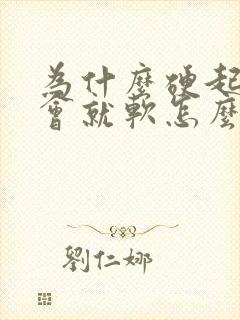 為什麼硬起
會就軟怎麼
劉仁娜